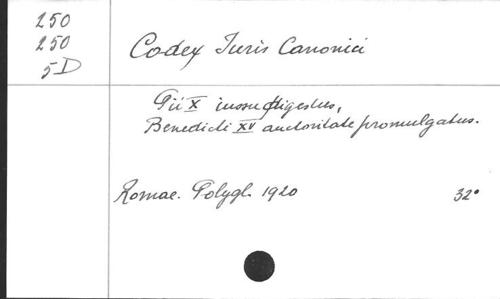 250
250
5D
Codex Iuris Canonici
Pii X iussu digestus,
Benedicti XV auctoritate promulgatus.
Romae. Polygl. 1920 32°